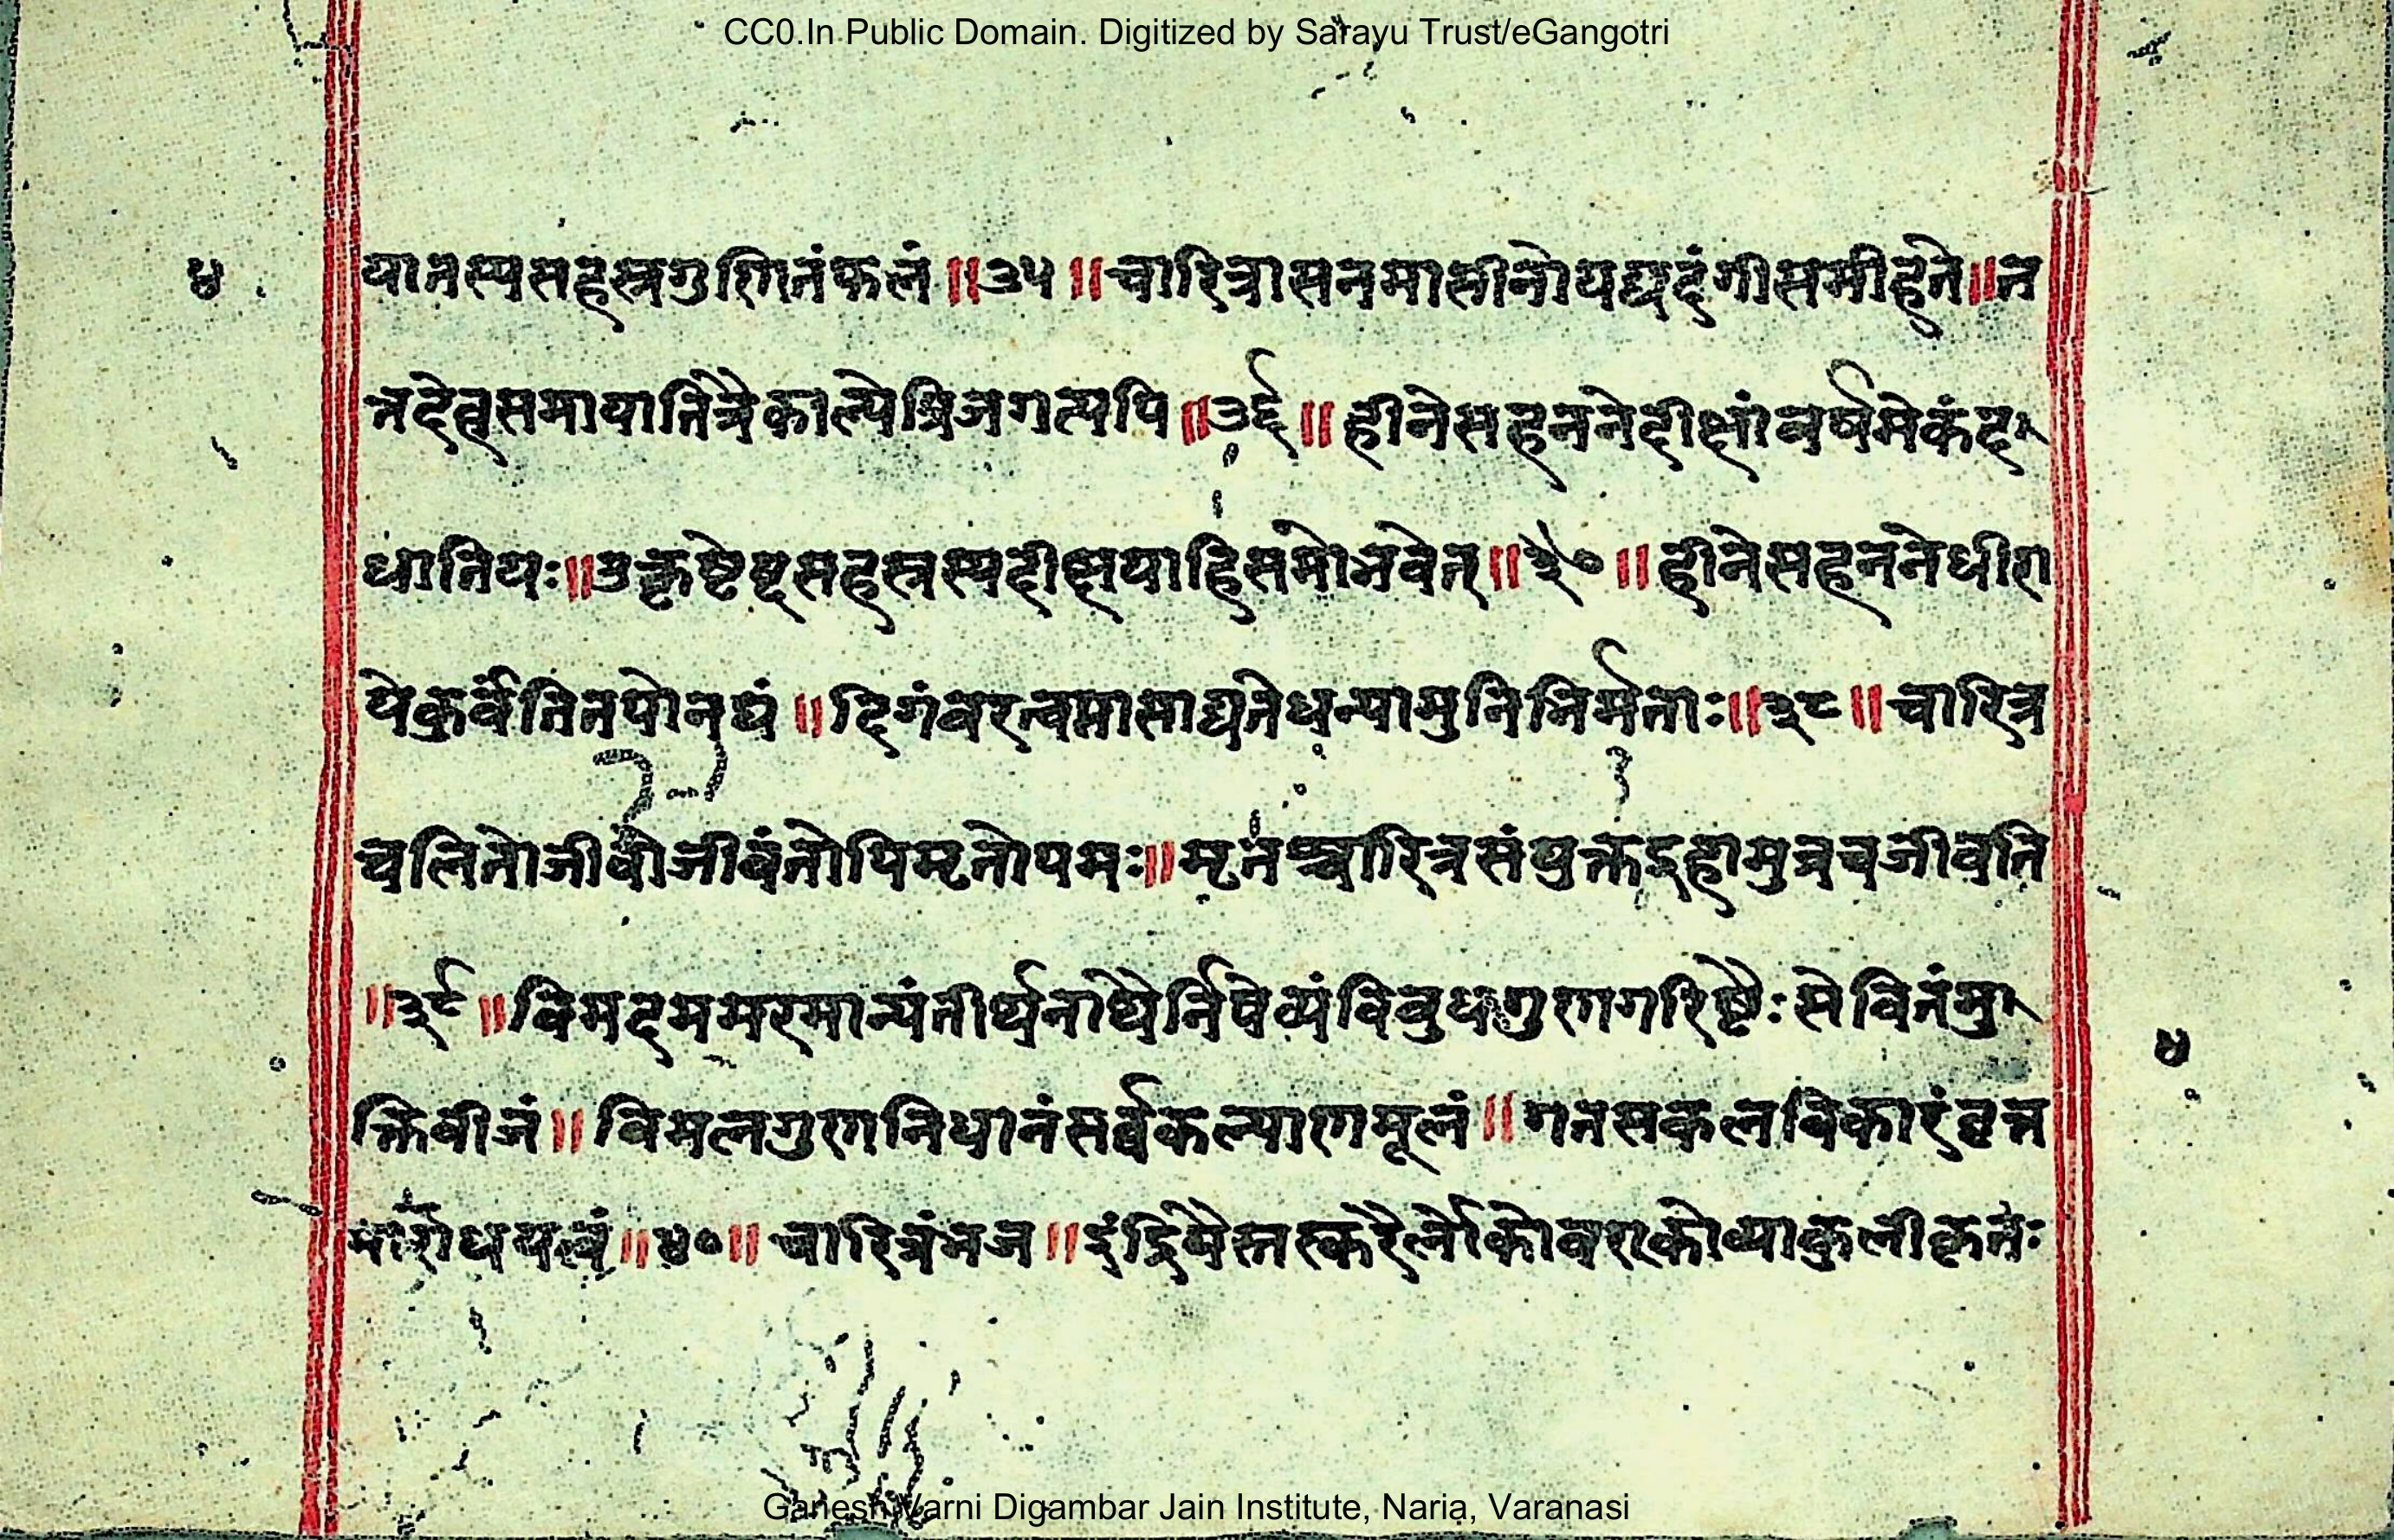 CC0.In Public Domain. Digitized by Sarayu Trust/eGangotri
४ यातस्यसहस्रगुणितंफलं॥३५॥चारित्रासनमासीनोयद्यदंगीसमीहते॥त
त्तदेत्वसमायातित्रैकाल्पेत्रिजगत्यपि॥३६॥हीनेसहननेदीक्षांवर्षमेकंद
धातियः॥उत्कृष्टेष्टसहस्रस्यदीक्षयाहिसमोभवेत्॥३७॥हीनेसहननेधीरा
येकुर्वंतितपोनघं॥दिगंबरत्वमासाद्यतेधन्यामुनिभिर्मताः॥३८॥चारित्र
चलितोजीवोजीवंतोपिमृतोपमः॥मृतश्चारित्रसंयुक्तइहामुत्रचजीवति
॥३९॥विमदममरमान्यंतीर्थनाथैर्निषेव्यंविबुधगुणगरिष्टैःसेवितंमु
क्तिबीजं॥विमलगुणनिधानंसर्वकल्याणमूलं॥गतसकलविकारंवृत्त
माराधयत्वं॥४०॥चारित्रंभज॥इंद्रियैस्तस्करैर्लोकोवराकोव्याकुलीकृतः
४
Ganesh Varni Digambar Jain Institute, Naria, Varanasi